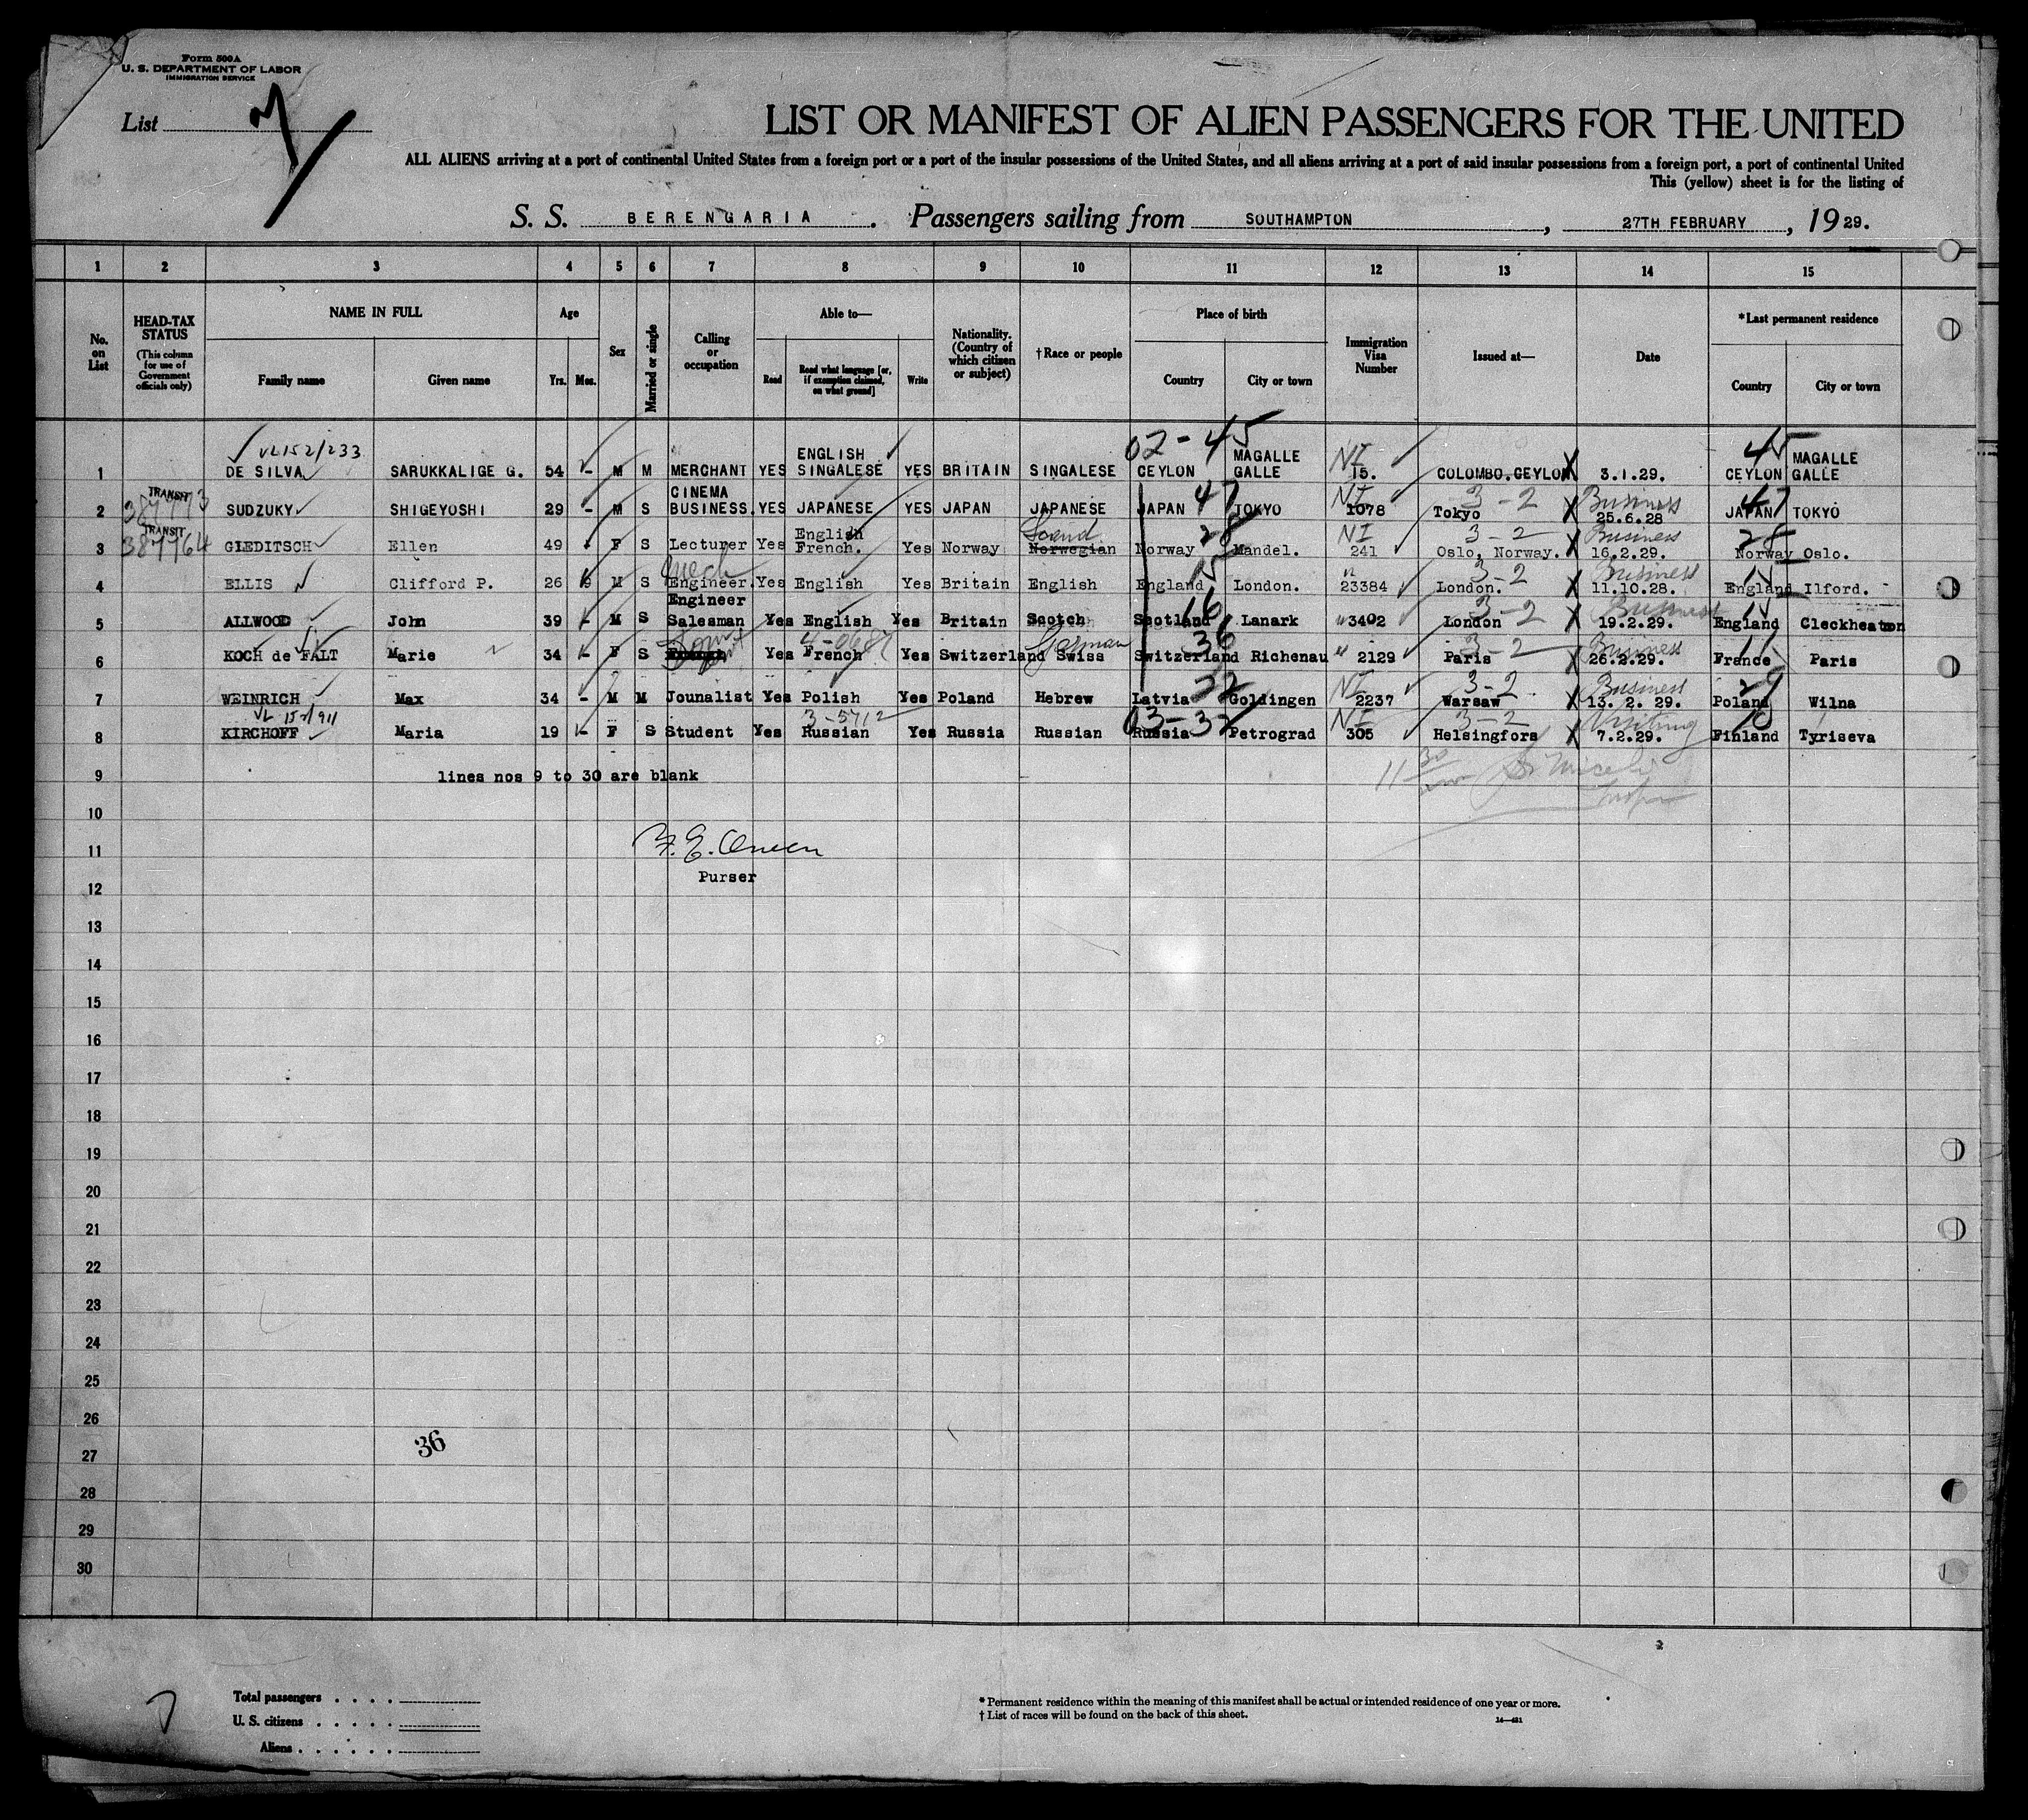 Form 500A
U. S. DEPARTMENT OF LABOR
IMMIGRATION SERVICE
List 7
LIST OR MANIFEST OF ALIEN PASSENGERS FOR THE UNITED
ALL ALIENS arriving at a port of continental United States from a foreign port or a port of the insular possessions of the United States, and all aliens arriving at a port of said insular possessions from a foreign port, a port of continental United
This (yellow) sheet is for the listing of
S. S. BERENGARIA. Passengers sailing from SOUTHAMPTON, 27TH FEBRUARY, 1929.
1 2 3 4 5 6 7 8 9 10 11 12 13 14 15
No. on List
HEAD-TAX STATUS (This column for use of Government officials only)
NAME IN FULL
Family name Given name
Age
Yrs. Mos.
Sex
Married or single
Calling or occupation
Able to—
Read Read what language [or, if exemption claimed, on what ground] Write
Nationality. (Country of which citizen or subject)
†Race or people
Place of birth
Country City or town
Immigration Visa Number
Issued at—
Date
*Last permanent residence
Country City or town
VL152/233 ENGLISH 02-45 MAGALLE NI 45 MAGALLE
1 DE SILVA SARUKKALIGE G. 54 - M M MERCHANT YES SINGALESE YES BRITAIN SINGALESE CEYLON GALLE 15. COLOMBO.CEYLON 3.1.29. CEYLON GALLE
TRANSIT CINEMA 47 NI 3-2 Business 47
2 SUDZUKY SHIGEYOSHI 29 - M S BUSINESS. YES JAPANESE YES JAPAN JAPANESE JAPAN TOKYO 1078 Tokyo 25.6.28 JAPAN TOKYO
TRANSIT 387764 English Scand. 28 NI 3-2 Business 28
3 GLEDITSCH Ellen 49 - F S Lecturer Yes French. Yes Norway Norwegian Norway Mandel. 241 Oslo, Norway. 16.2.29. Norway Oslo.
Mech 15 3-2 Business
4 ELLIS Clifford P. 26 9 M S Engineer. Yes English Yes Britain English England London. 23384 London. 11.10.28. England Ilford.
Engineer 16 3-2 Business 15
5 ALLWOOD John 39 - M S Salesman Yes English Yes Britain Scotch Scotland Lanark 3402 London 19.2.29. England Cleckheaton
4-0687 German 36 3-2 Business 11
6 KOCH de FALT Marie 34 - F S Yes French Yes Switzerland Swiss Switzerland Richenau 2129 Paris 26.2.29. France Paris
32 NI 3-2 Business 29
7 WEINRICH Max 34 - M M Jounalist Yes Polish Yes Poland Hebrew Latvia Goldingen 2237 Warsaw 13. 2. 29. Poland Wilna
VL 152/911 3-5712 03-32 NI 3-2 Visiting 10
8 KIRCHOFF Maria 19 - F S Student Yes Russian Yes Russia Russian Russia Petrograd 305 Helsingfors 7.2.29. Finland Tyriseva
9 lines nos 9 to 30 are blank
10
11
Purser
12
13
14
15
16
17
18
19
20
21
22
23
24
25
26
36
27
28
29
30
2
7
Total passengers . . . .
U. S. citizens . . . . .
Aliens . . . . . .
* Permanent residence within the meaning of this manifest shall be actual or intended residence of one year or more.
† List of races will be found on the back of this sheet.